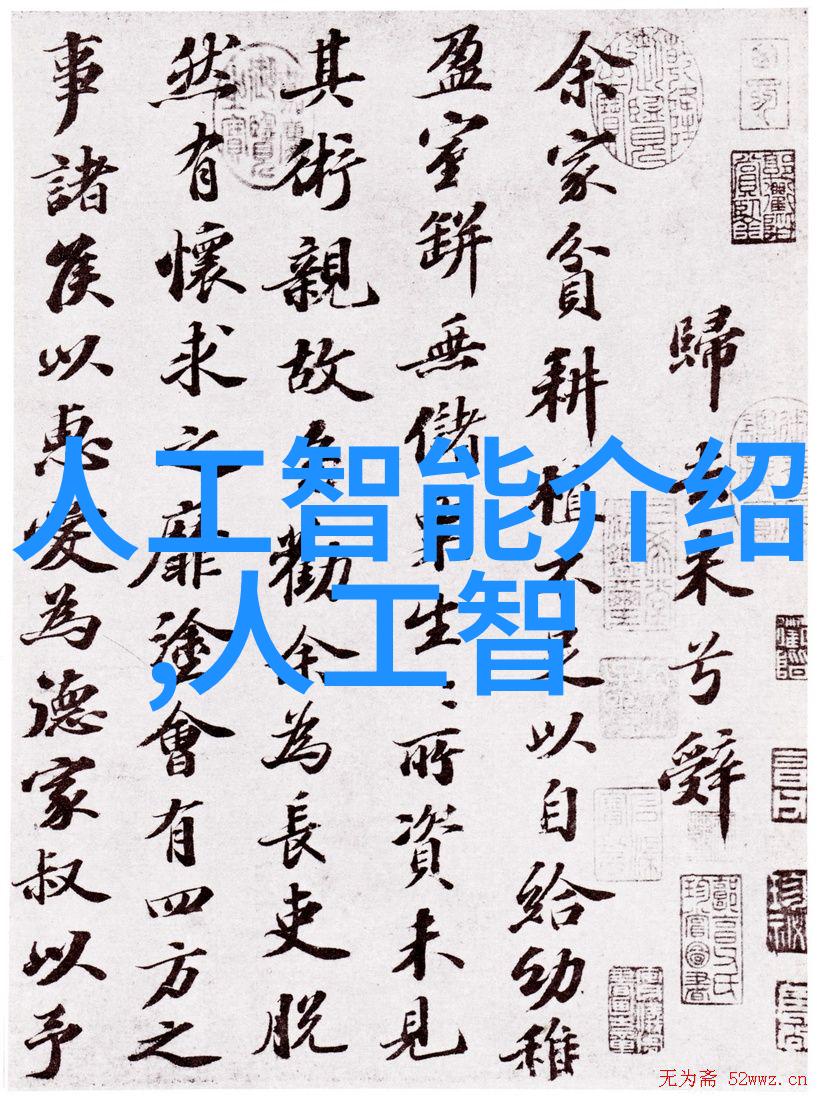 歸去来兮辭
余家貧耕植不足以自給幼稚
盈室缾無儲粟生:所資未見
其術親故多勸余為長吏脱
然有懷求之靡途會有四方之
事諸侯以惠愛為德家叔以予
人工智能介绍
,人工智
无为斋 52wwz.cn